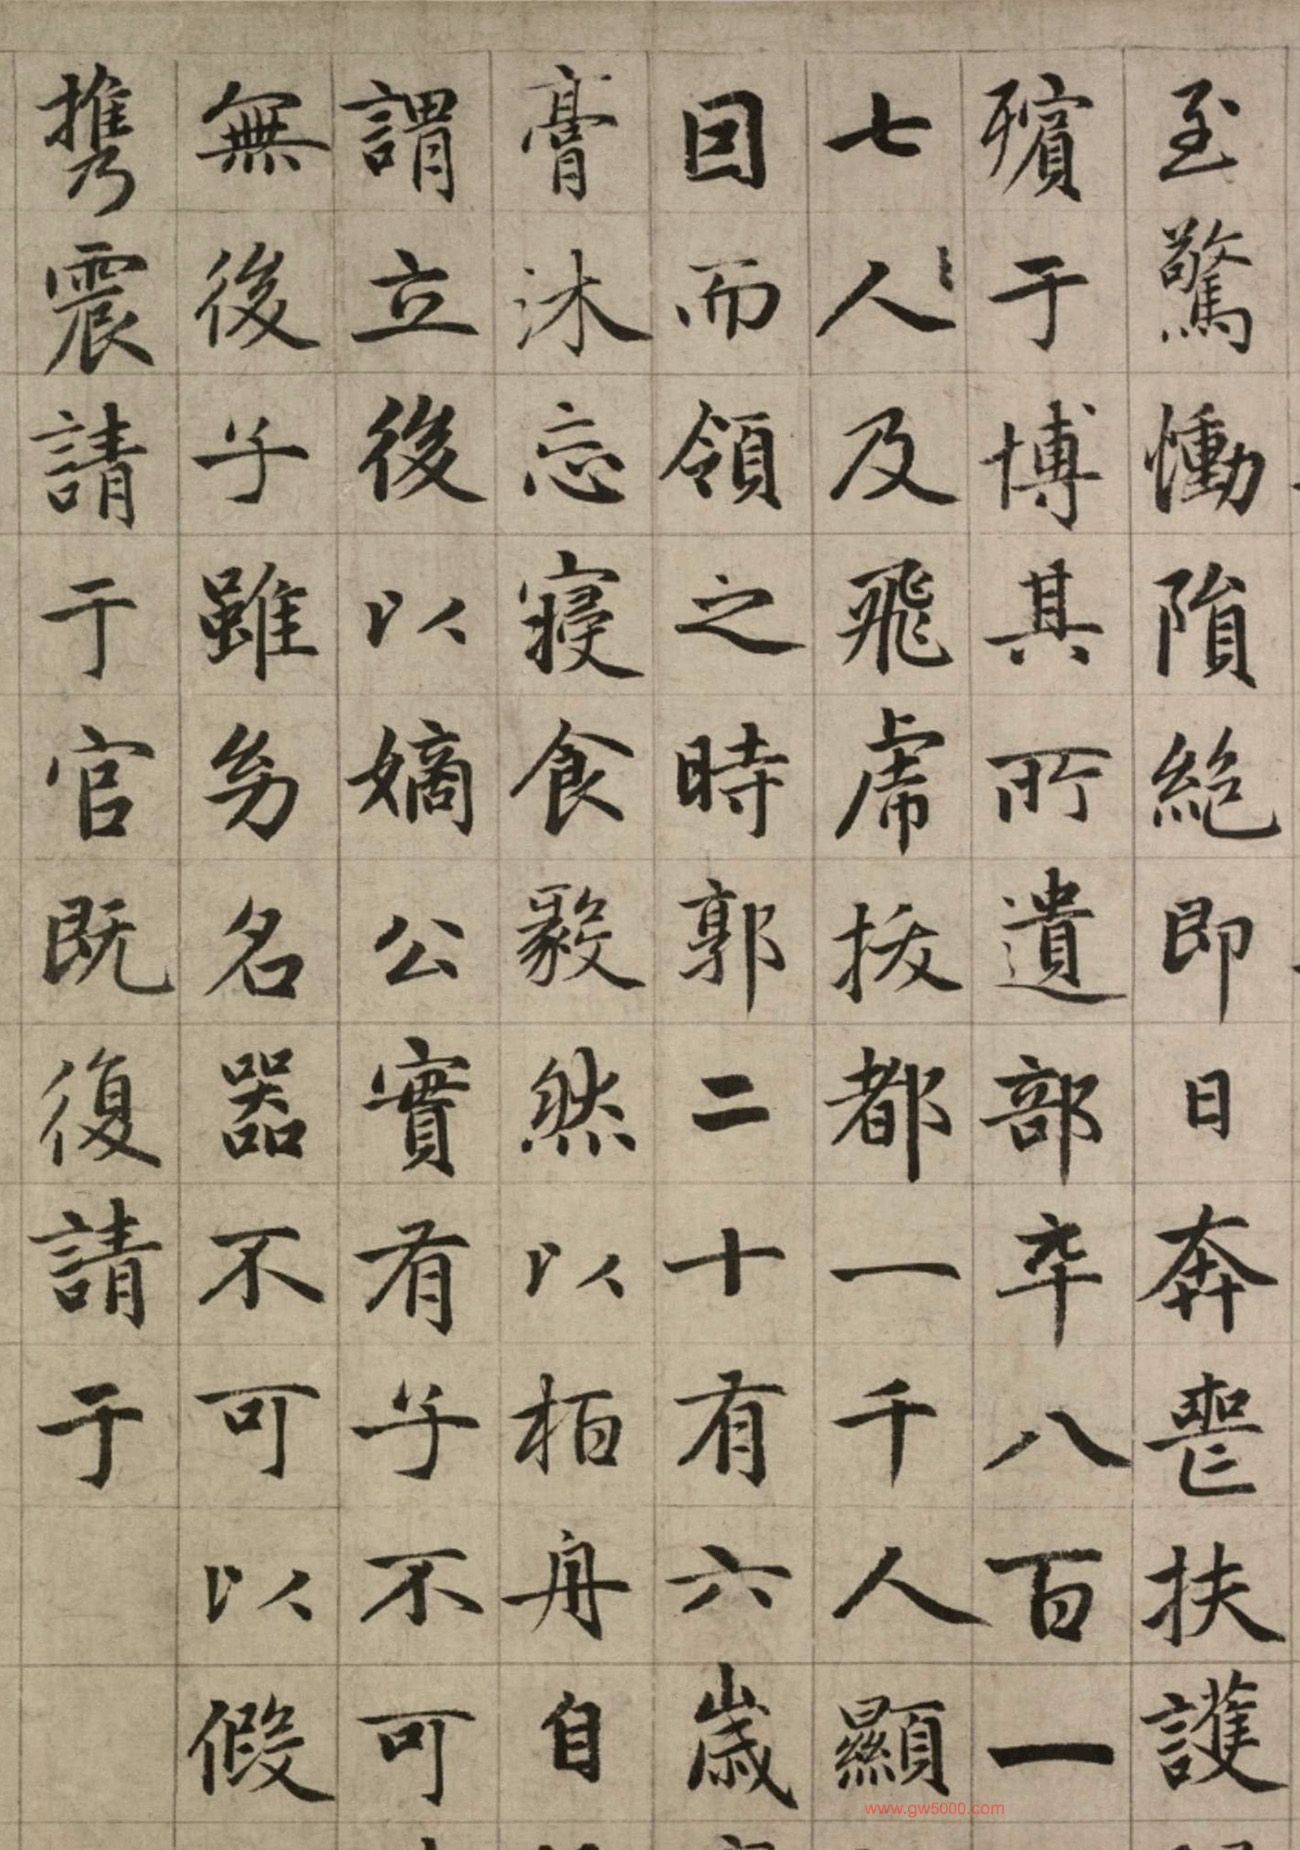 至驚慟隕絕即日奔喪扶護
殯于博其所遺部卒八百一
七人及飛虎拔都一千人顯
因而領之時郭二十有六歲
膏沐忘寢食毅然以栢舟自
謂立後以嫡公實有子不可
無後子雖幼名器不可以假
携震請于官既復請于
www.gw5000.com